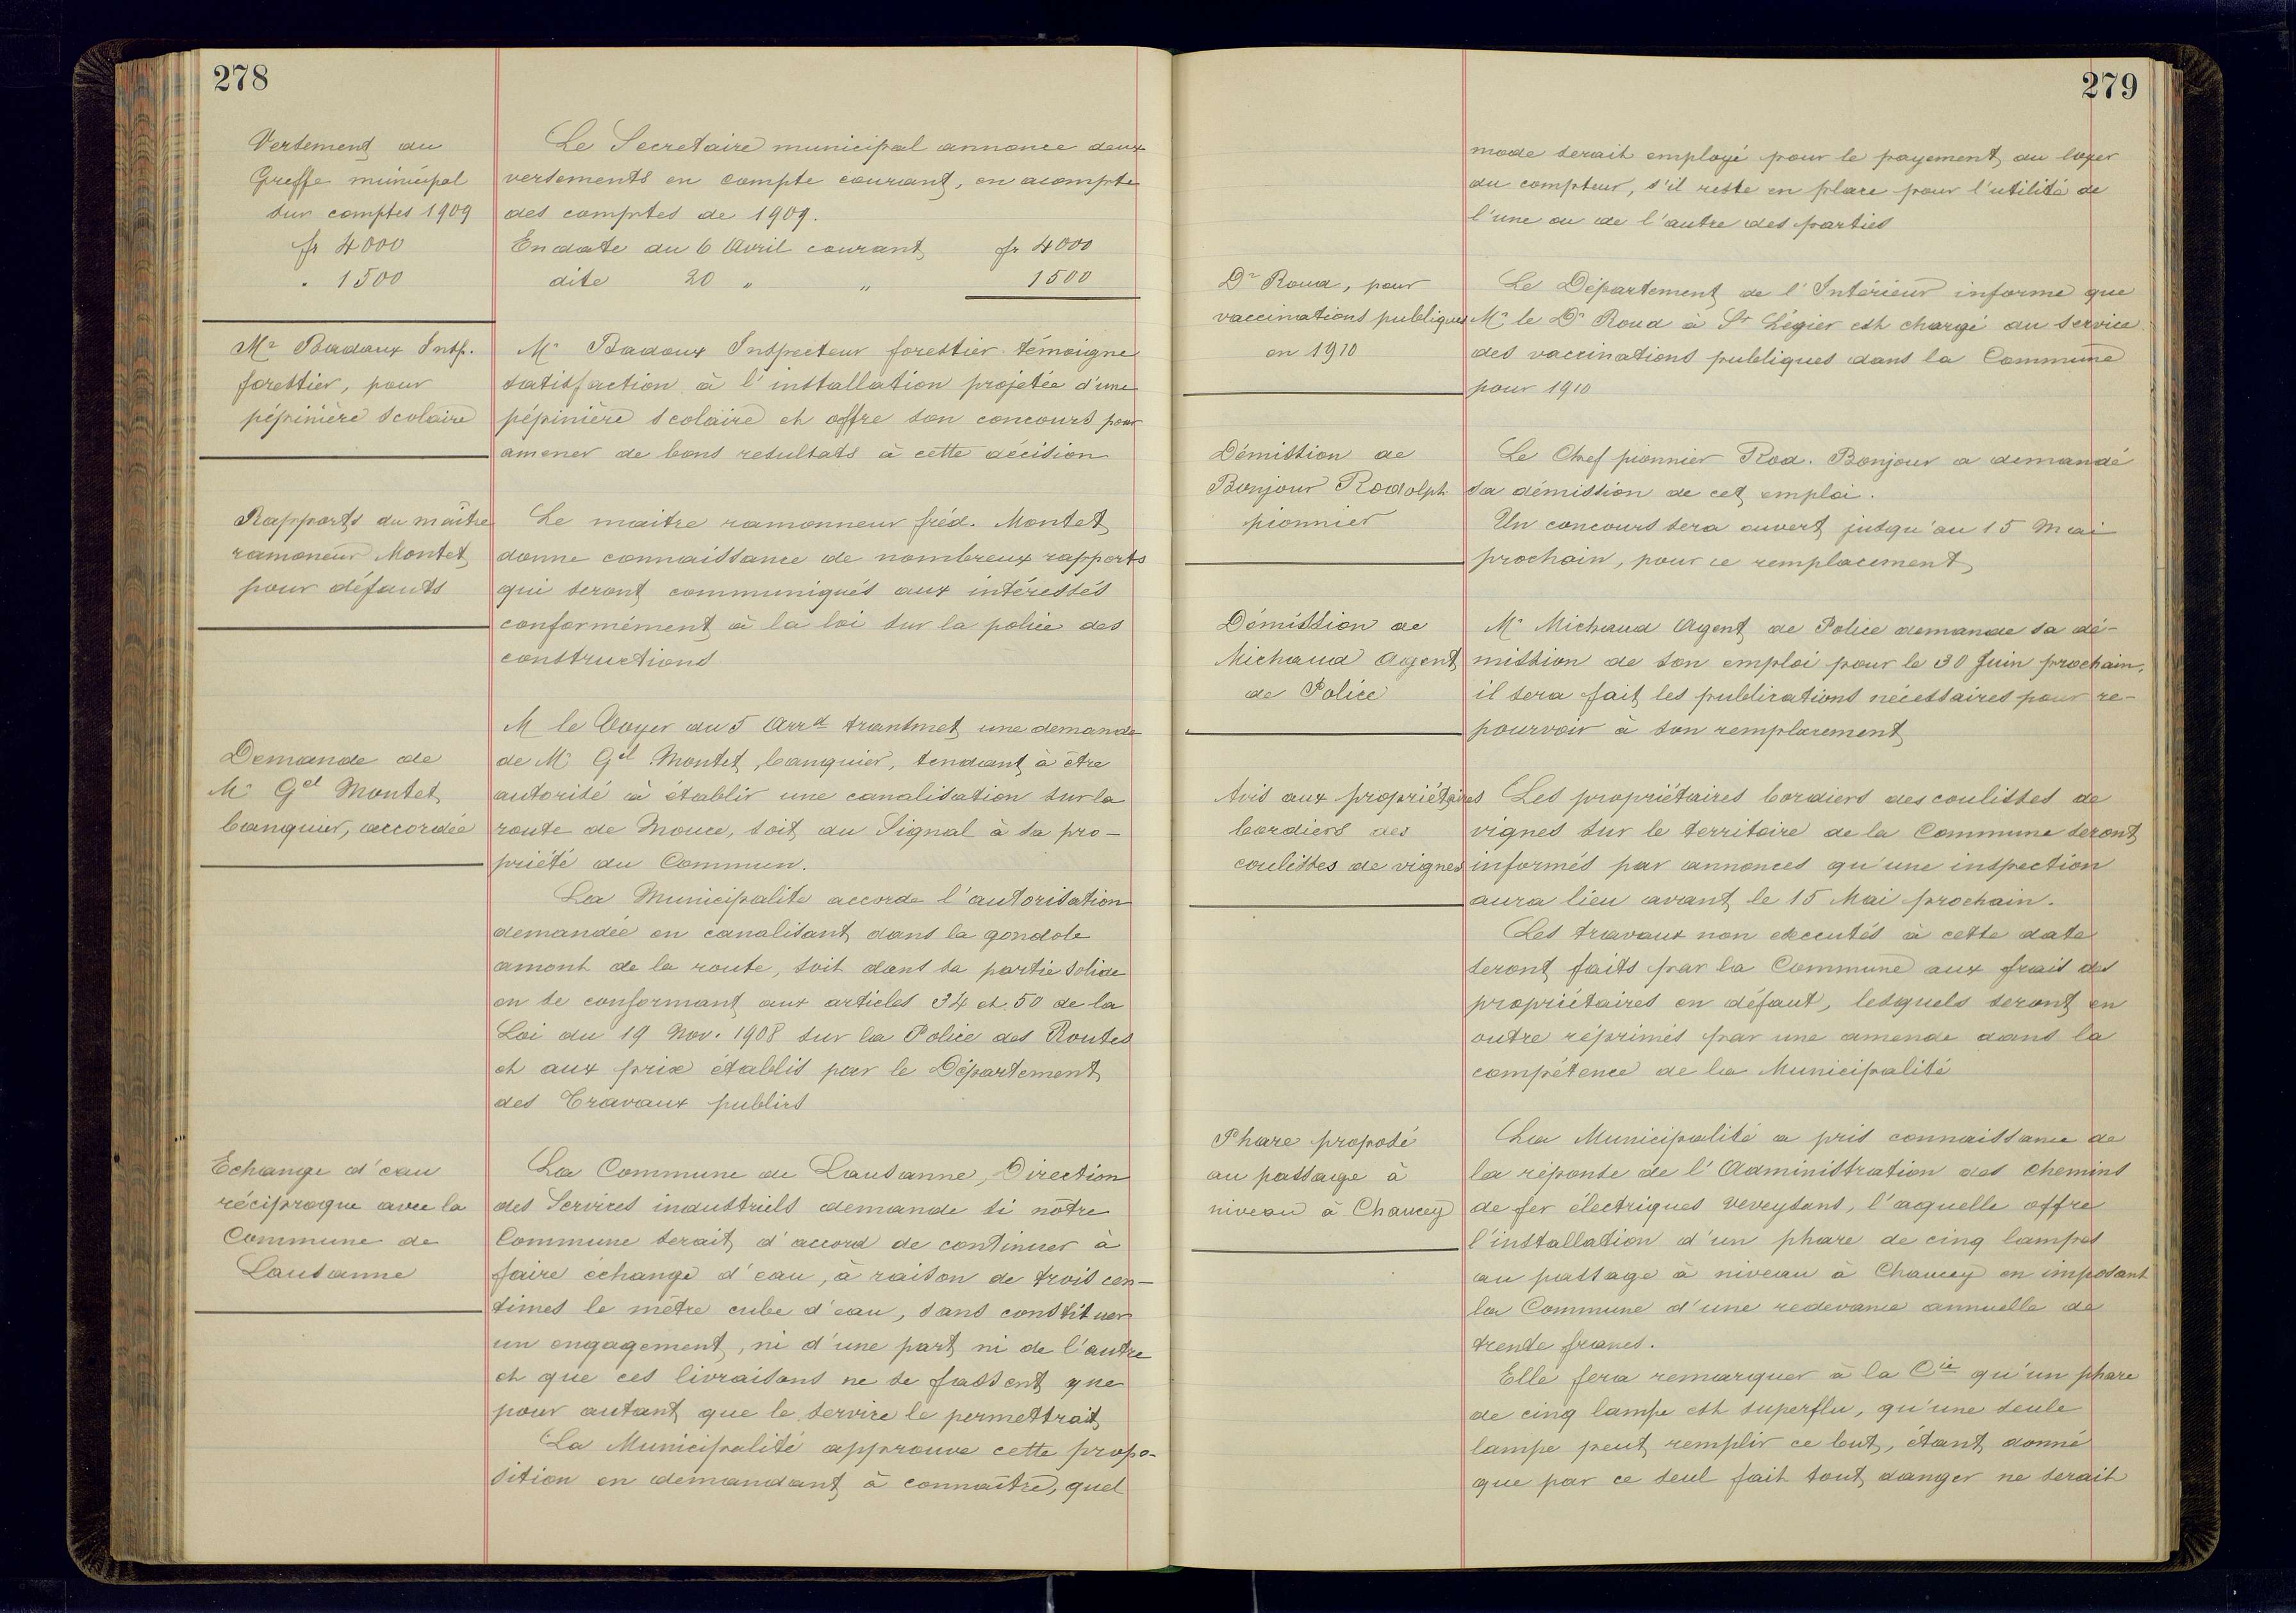 278
Versement du
Greffe municipal
sur comptes 1909
fr 4000
" 1500
Le Secretaire municipal annonce deux
versements en compte courant, en acompte
des comptes de 1909.
En date du 6 Avril courant fr 4000
dite 20 " " 1500
Mr Badoux Insp.
forestier, pour
pépinière scolaire
Mr Badoux Inspecteur forestier témoigne
satisfaction à l'installation projetée d'une
pépinière scolaire et offre son concours pour
amener de bons resultats à cette décision
Rapports du maître
ramoneur Montet
pour défauts
Le maitre ramonneur fréd. Montet
donne connaissance de nombreux rapports
qui seront communiqués aux intéressés
conformément à la loi sur la police des
constructions
Demande de
Mr Gel Montet
banquier, accordée
M le Voyer du 5 Arrd transmet une demande
de Mr Gel Montet, banquier, tendant à être
autorisé à établir une canalisation sur la
route de Mouce, soit du Signal à sa pro-
priété du Commun.
La Municipalite accorde l'autorisation
demandée en canalisant dans la gondole
amont de la route, soit dans sa partie solide
en se conformant aux articles 34 et 50 de la
Loi du 19 Nov. 1908 sur la Police des Routes
et aux prix établis par le Département
des Travaux publics
Echange d'eau
réciproque avec la
Commune de
Lausanne
La Commune de Lausanne, Direction
des Services industriels demande si nôtre
Commune serait d'accord de continuer à
faire échange d'eau, à raison de trois cen-
times le mètre cube d'eau, sans constituer
un engagement, ni d'une part ni de l'autre
et que ces livraisons ne se fassent que
pour autant que le service le permettrait
La Municipalité approuve cette propo-
sition en demandant à connaître, quel
279
mode serait employé pour le payement du loyer
du compteur, s'il reste en place pour l'utilité de
l'une ou de l'autre des parties
Dr Roud, pour
vaccinations publiques
en 1910
Le Département de l'Intérieur informe que
Mr le Dr Roud à St Légier est chargé du service
des vaccinations publiques dans la Commune
pour 1910
Démission de
Bonjour Rodolph
pionnier
Le Chef pionnier Rod. Bonjour a demandé
sa démission de cet emploi.
Un concours sera ouvert jusqu'au 15 Mai
prochain, pour ce remplacement
Démission de
Michaud Agent
de Police
Mr Michaud Agent de Police demande sa dé-
mission de son emploi pour le 30 Juin prochain,
il sera fait les publications nécessaires pour re-
pourvoir à son remplacement
Avis aux propriétaires
bordiers des
coulisses de vignes
Les propriétaires bordiers des coulisses de
vignes sur le territoire de la Commune seront
informés par annonces qu'une inspection
aura lieu avant le 15 Mai prochain.
Les travaux non executés à cette date
seront faits par la Commune aux frais des
propriétaires en défaut, lesquels seront en
outre réprimés par une amende dans la
compétence de la Municipalité
Phare proposé
au passage à
niveau à Chaucey
La Municipalité a pris connaissance de
la réponse de l'Administration des chemins
de fer électriques veveysans, l'aquelle offre
l'installation d'un phare de cinq lampes
au passage à niveau à Chaucey en imposant
la Commune d'une redevance annuelle de
trente francs.
Elle fera remarquer à la Cie qu'un phare
de cinq lampe est superflu, qu'une seule
lampe peut remplir ce but, étant donné
que par ce seul fait tout danger ne serait